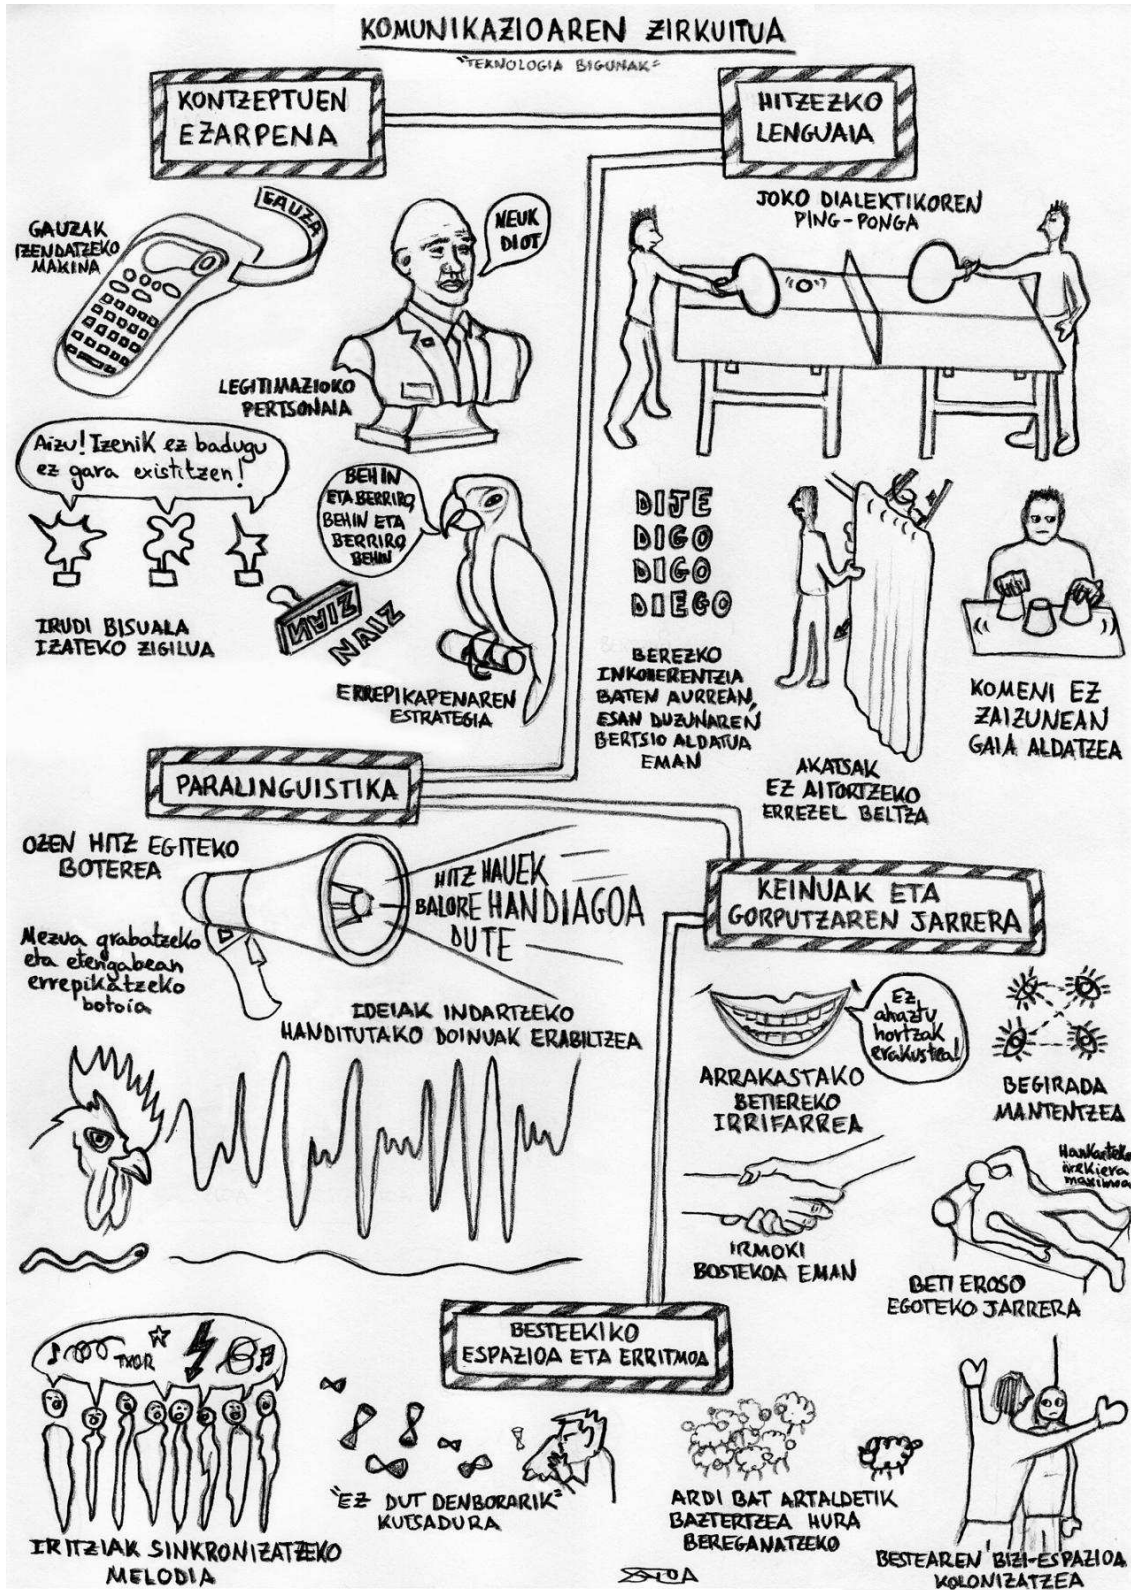 KOMUNIKAZIOAREN ZIRKUITUA
"TEKNOLOGIA BIGUNAK"
KONTZEPTUEN
EZARPENA
HITZEZKO
LENGUAIA
GAUZAK
IZENDATZEKO
MAKINA
GAUZA
NEUK
DIOT
LEGITIMAZIOKO
PERTSONAIA
JOKO DIALEKTIKOREN
PING-PONGA
Aizu! Izenik ez badugu
ez gara existitzen!
IRUDI BISUALA
IZATEKO ZIGILUA
BEHIN
ETA BERRIRO,
BEHIN ETA
BERRIRO,
BEHIN
NAIZ
NAIZ
ERREPIKAPENAREN
ESTRATEGIA
DIJE
DIGO
DIGO
DIEGO
BEREZKO
INKOHERENTZIA
BATEN AURREAN,
ESAN DUZUNAREN
BERTSIO ALDATUA
EMAN
AKATSAK
EZ AITORTZEKO
ERREZEL BELTZA
KOMENI EZ
ZAIZUNEAN
GAIA ALDATZEA
PARALINGUISTIKA
OZEN HITZ EGITEKO
BOTEREA
Mezua grabatzeko
eta etengabean
errepikatzeko
botoia
HITZ HAUEK
BALORE HANDIAGOA
DUTE
IDEIAK INDARTZEKO
HANDITUTAKO DOINUAK ERABILTZEA
KEINUAK ETA
GORPUTZAREN JARRERA
Ez
ahaztu
hortzak
erakustea!
ARRAKASTAKO
BETIEREKO
IRRIFARREA
BEGIRADA
MANTENTZEA
IRMOKI
BOSTEKOA EMAN
Hankarteko
irekiera
maximoa
BETI EROSO
EGOTEKO JARRERA
BESTEEKIKO
ESPAZIOA ETA ERRITMOA
TXOR
IRITZIAK SINKRONIZATZEKO
MELODIA
"EZ DUT DENBORARIK"
KUTSADURA
ARDI BAT ARTALDETIK
BAZTERTZEA HURA
BEREGANATZEKO
BESTEAREN BIZI-ESPAZIOA
KOLONIZATZEA